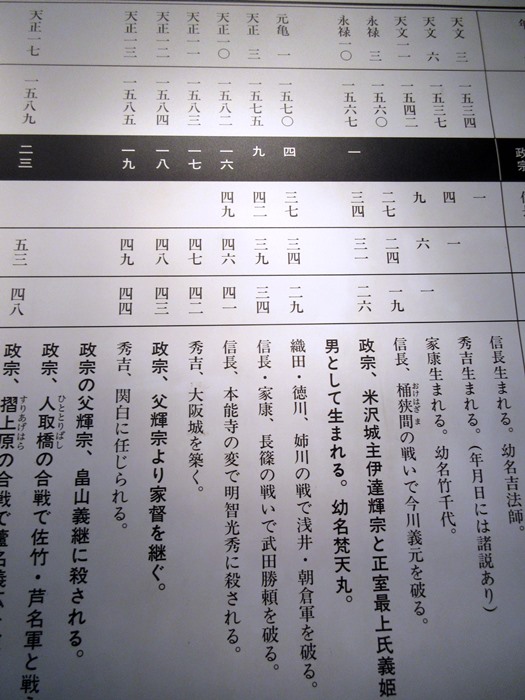 政宗
天文 三 一五三四 一 信長生まれる。幼名吉法師。
天文 六 一五三七 四 一 秀吉生まれる。（年月日には諸説あり）
天文一一 一五四二 九 六 一 家康生まれる。幼名竹千代。
おけはざま
永禄 三 一五六〇 二七 二四 一九 信長、桶狭間の戦いで今川義元を破る。
永禄一〇 一五六七 一 三四 三一 二六 政宗、米沢城主伊達輝宗と正室最上氏義姫
男として生まれる。幼名梵天丸。
元亀 一 一五七〇 四 三七 三四 二九 織田・徳川、姉川の戦で浅井・朝倉軍を破る。
天正 三 一五七五 九 四二 三九 三四 信長・家康、長篠の戦いで武田勝頼を破る。
天正一〇 一五八二 一六 四九 四六 四一 信長、本能寺の変で明智光秀に殺される。
天正一一 一五八三 一七 四七 四二 秀吉、大阪城を築く。
天正一二 一五八四 一八 四八 四三 政宗、父輝宗より家督を継ぐ。
天正一三 一五八五 一九 四九 四四 秀吉、関白に任じられる。
政宗の父輝宗、畠山義継に殺される。
ひととりばし
政宗、人取橋の合戦で佐竹・芦名軍と戦
すりあげはら
天正一七 一五八九 二三 五三 四八 政宗、摺上原の合戦で